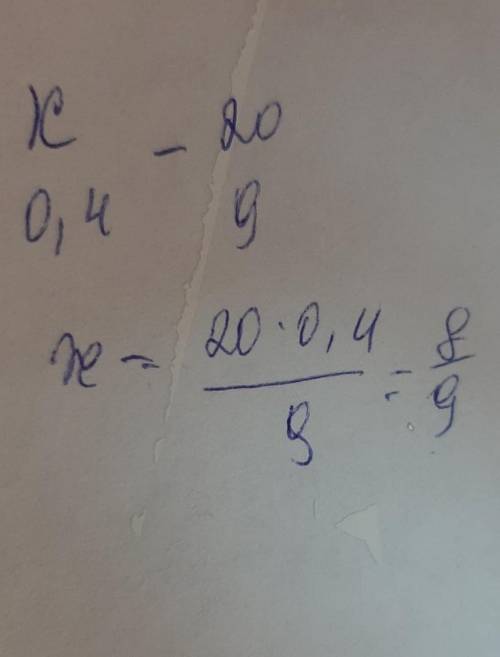 x - 20
0,4 9
x = 20·0,4 = 8
9 9